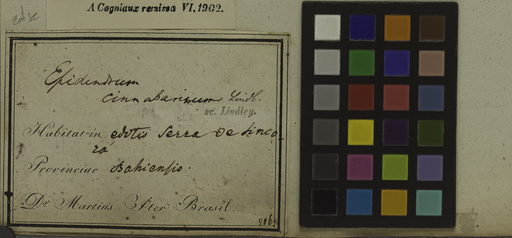 A Cogniaux remissa VI. 1902.
Epidendrum
cinnabarinum Lindl.
sc. Lindley.
Habitat in editis Serra de Sinco-
ra
Provinciae Bahiensis.
Dr. Martius Iter Brasil.